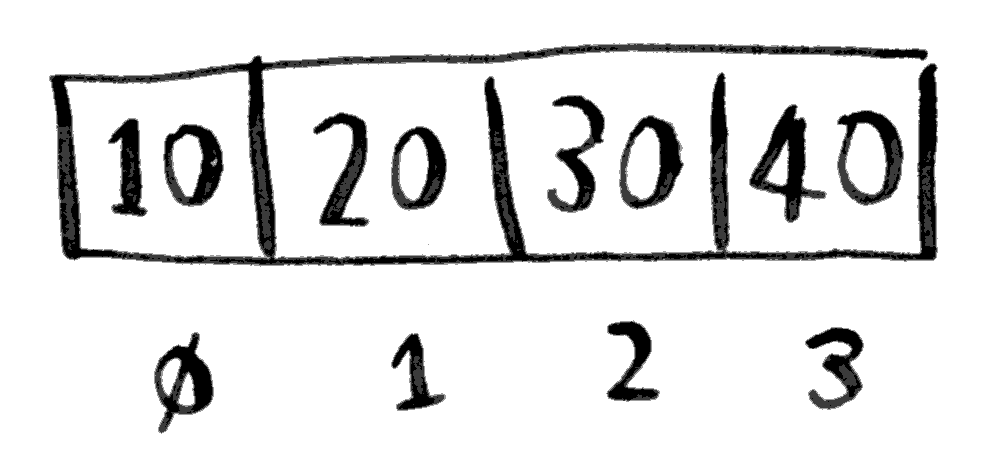 10 20 30 40
0 1 2 3